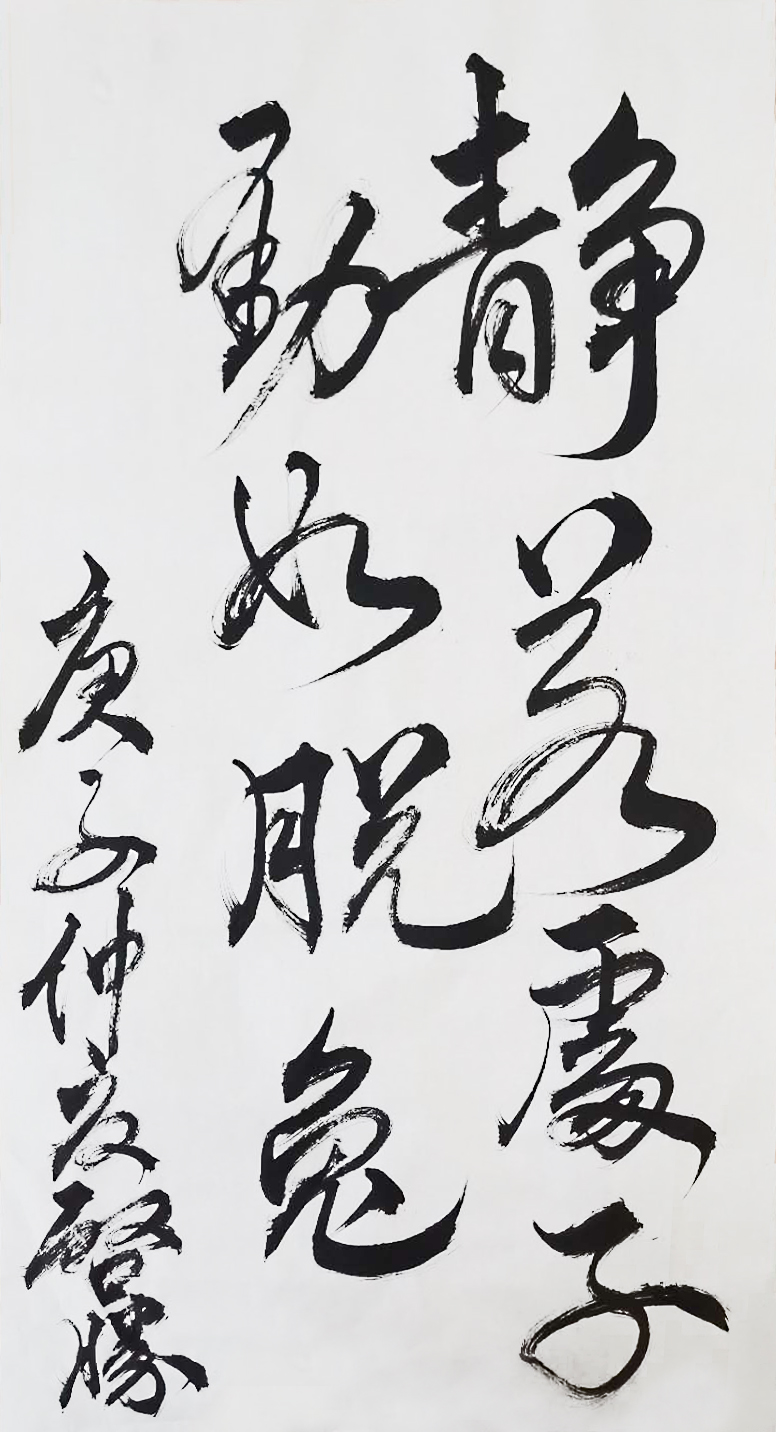 静若處子
動如脱兔
庚子仲夏啓勝